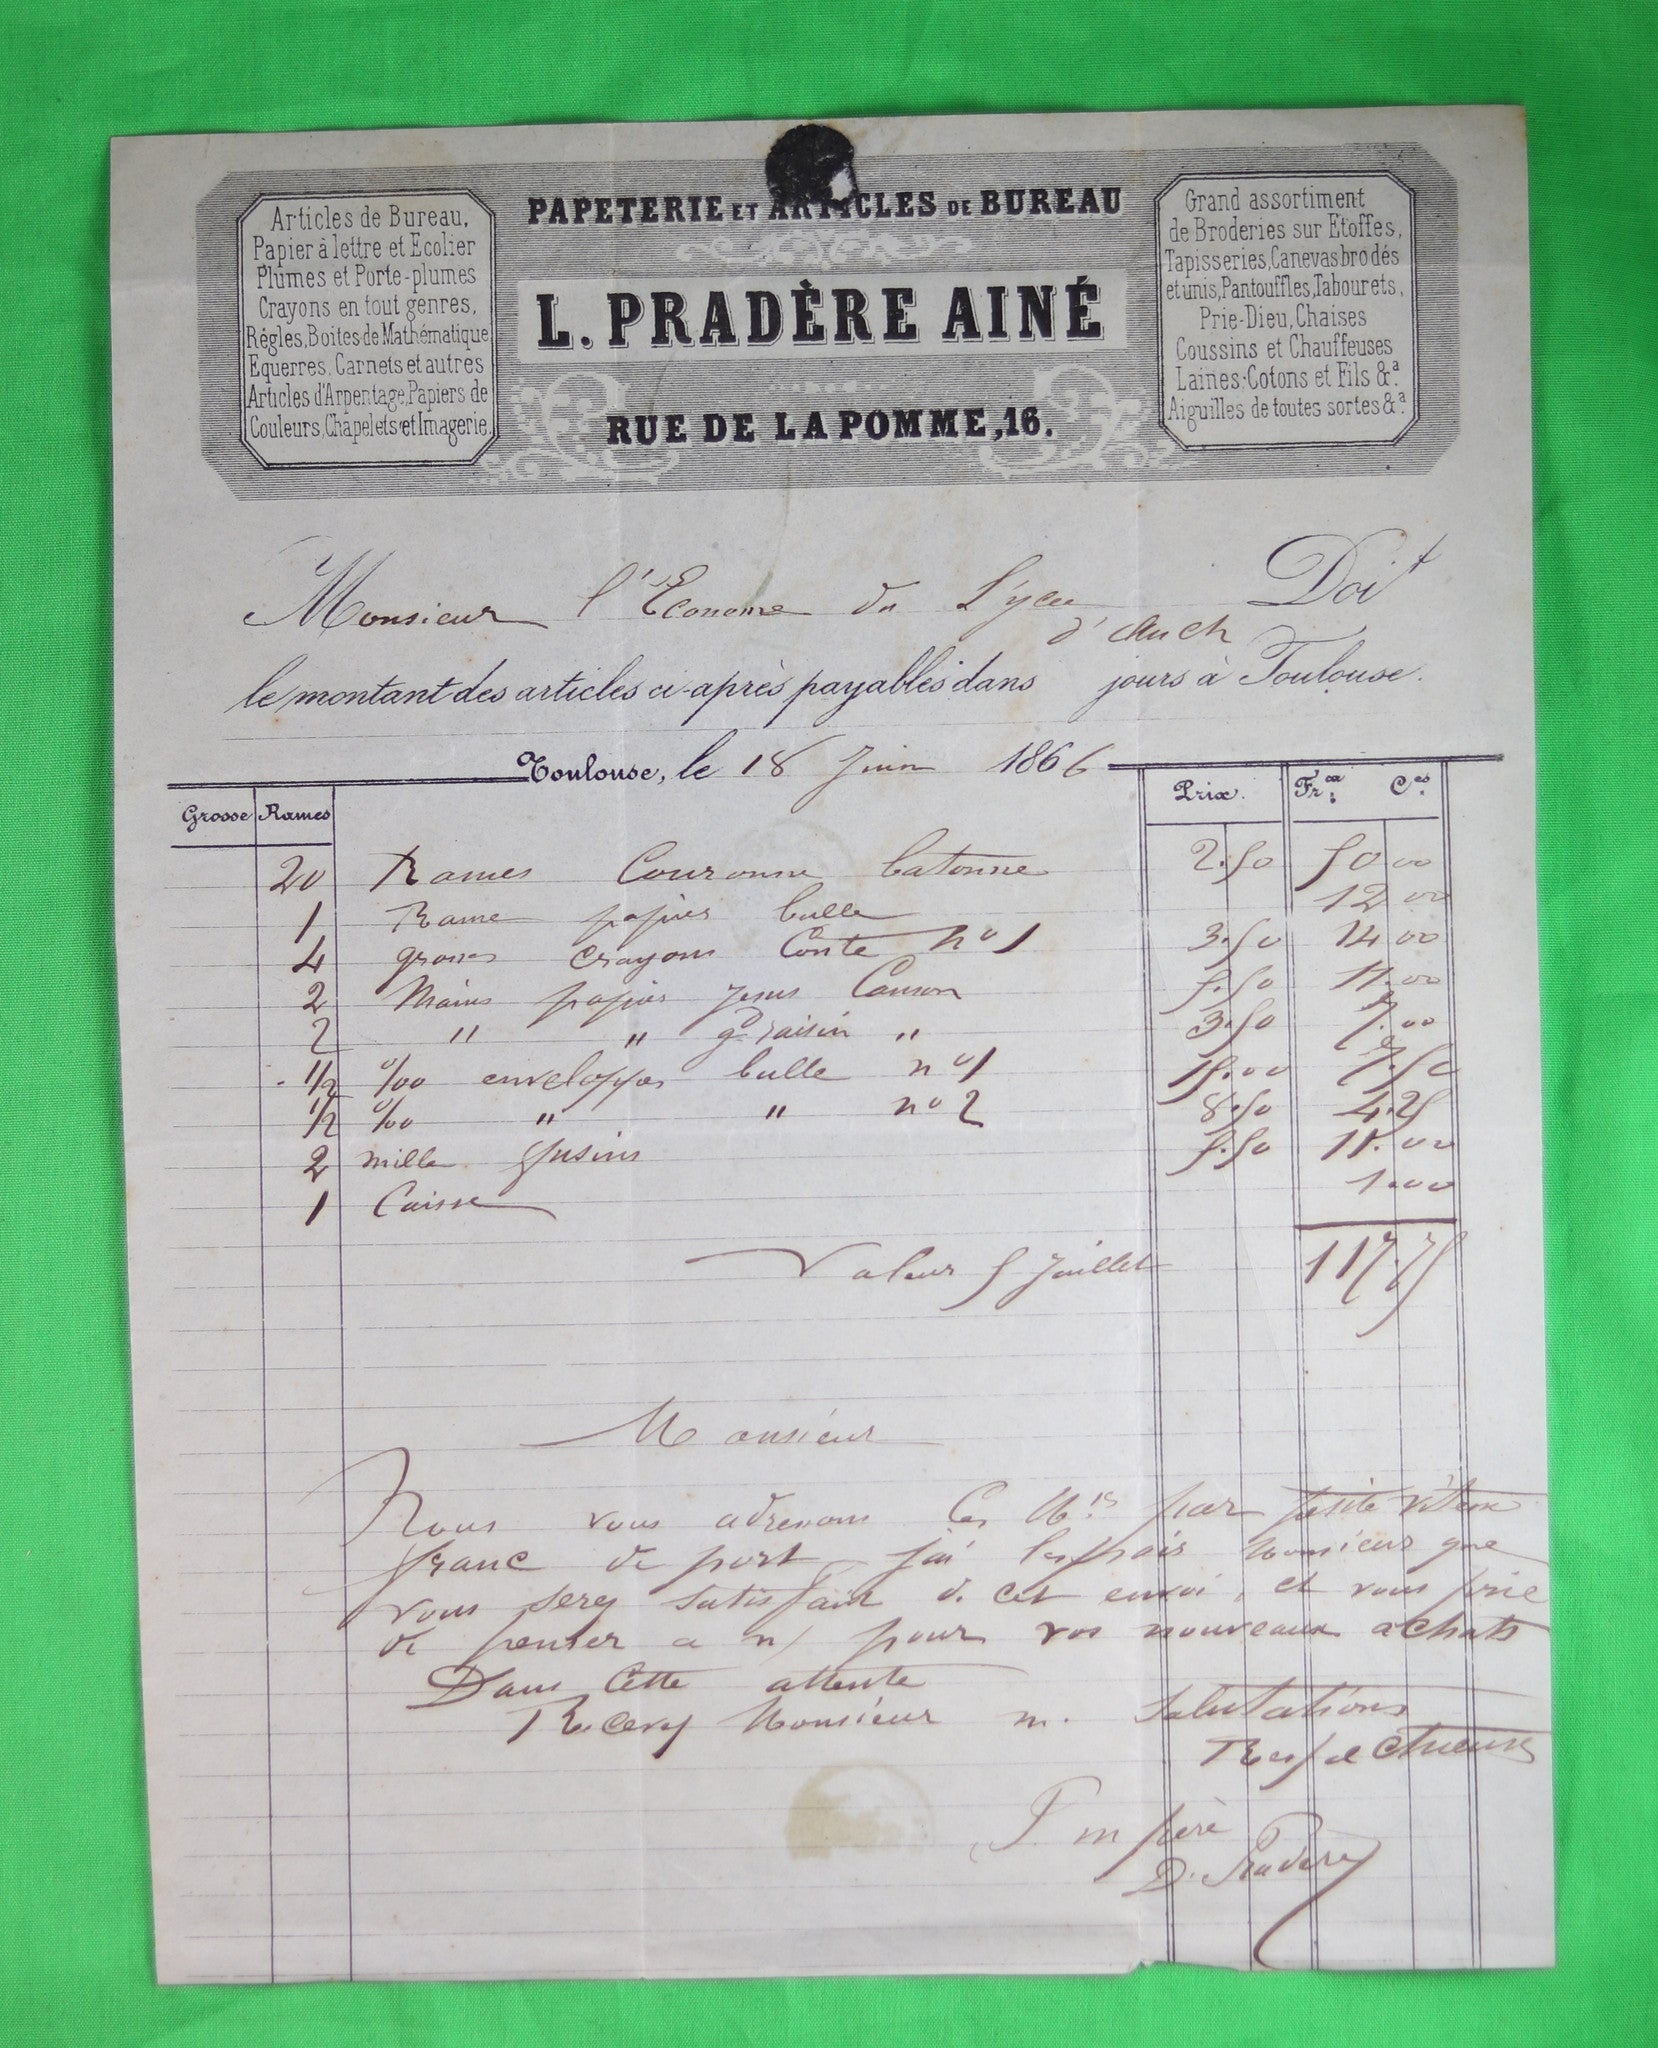 PAPETERIE ET ARTICLES DE BUREAU
L. PRADÈRE AINÉ
RUE DE LA POMME, 16.
Articles de Bureau,
Papier à lettre et Ecolier
Plumes et Porte-plumes
Crayons en tout genres,
Régles, Boites de Mathématique
Equerres, Carnets et autres
Articles d'Arpentage, Papiers de
Couleurs, Chapelets et Imagerie.
Grand assortiment
de Broderies sur Etoffes,
Tapisseries, Canevas brodés
et unis, Pantouffles, Tabourets,
Prie-Dieu, Chaises
Coussins et Chauffeuses
Laines, Cotons et Fils &a.
Aiguilles de toutes sortes &a.
Monsieur l'Econome du Lycée Doit
d'Auch
le montant des articles ci-après payables dans jours à Toulouse.
Toulouse, le 18 Juin 1866
Grosse Rames Prix. Frcs Ces
20 Rames Couronne batonne 2.50 50 00
1 Rame papier bulle 12 00
4 grosses crayons Conté no 1 3.50 14 00
2 Mains papier jesus Canson 5.50 11.00
2 " " gd raisin " 3.50 7.00
1/2 %00 enveloppes bulle no 1 15.00 7.50
1/2 %00 " " no 2 8.50 4.25
2 mille fusins 5.50 11.00
1 Caisse 1.00
Valeur 5 Juillet 117.75
Monsieur
Nous vous adressons Ces Mses par petite vitesse
franc de port, j'ai l'espoir Monsieur que
vous serez satisfait de cet envoi, et vous prie
de penser a n/ pour vos nouveaux achats
Dans Cette attente
Recevez Monsieur m. Salutations
Respectueuses
P. m père
D. Pradère